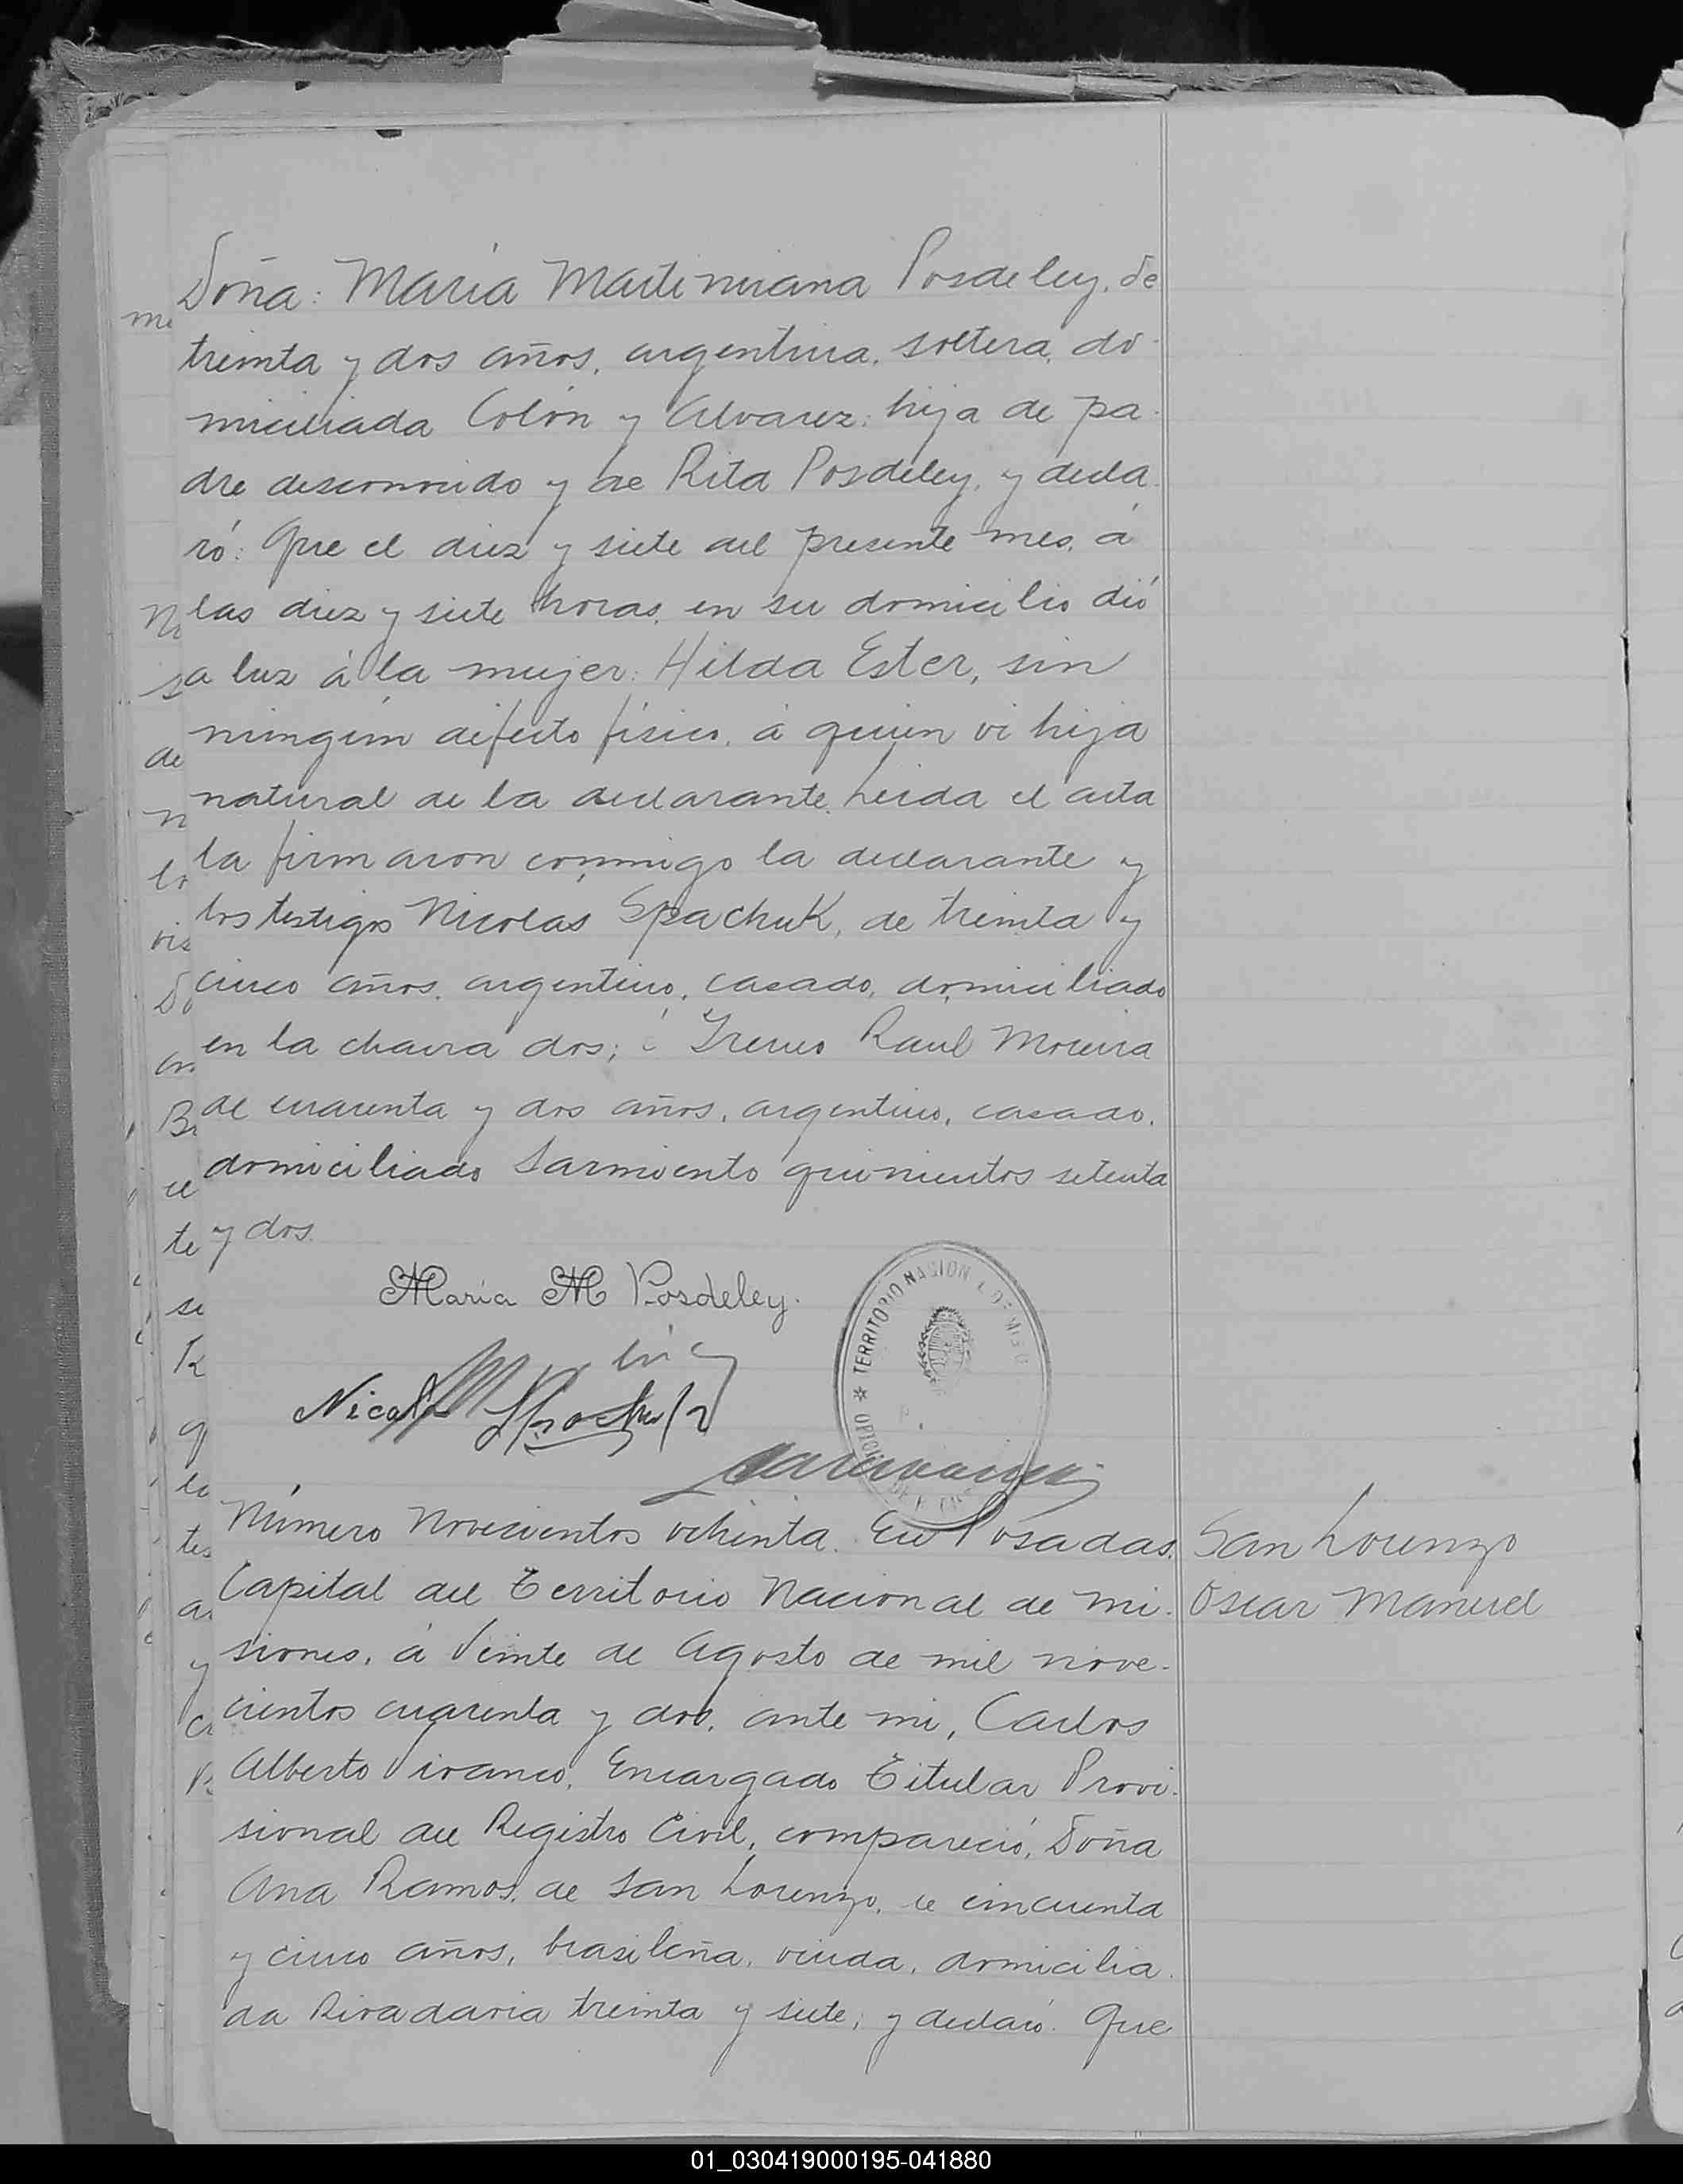 Doña: Maria Martiniana Posdeley, de
treinta y dos años, argentina, soltera, do-
miciliada Colón y Alvarez: hija de pa-
dre desconocido y de Rita Posdeley, y decla-
ró: Que el diez y siete del presente mes, á
las diez y siete horas, en su domicilio dió
a luz á la mujer: Hilda Ester, sin
ningún defecto físico, á quien vi hija
natural de la declarante. Leida el acta
la firmaron conmigo la declarante y
los testigos Nicolás Spachuk, de treinta y
cinco años, argentino, casado, domiciliado
en la chacra dos; é Ireneo Raul Moreira
de cuarenta y dos años, argentino, casado,
domiciliado Sarmiento quinientos setenta
y dos.
Maria M Posdeley.
TERRITORIO NACIONAL DE MISIO
Nicolás Spachuk
Número novecientos ochenta. En Posadas,
San Lorenzo
Capital del Territorio Nacional de Mi-
Oscar Manuel
siones, á veinte de Agosto de mil nove-
cientos cuarenta y dos, ante mi, Carlos
Alberto Vivanco, Encargado Titular Provi-
sional del Registro Civil, compareció, Doña
Ana Ramos, de San Lorenzo, de cincuenta
y cinco años, brasileña, viuda, domicilia-
da Rivadavia treinta y siete; y declaró: Que
01_030419000195-041880